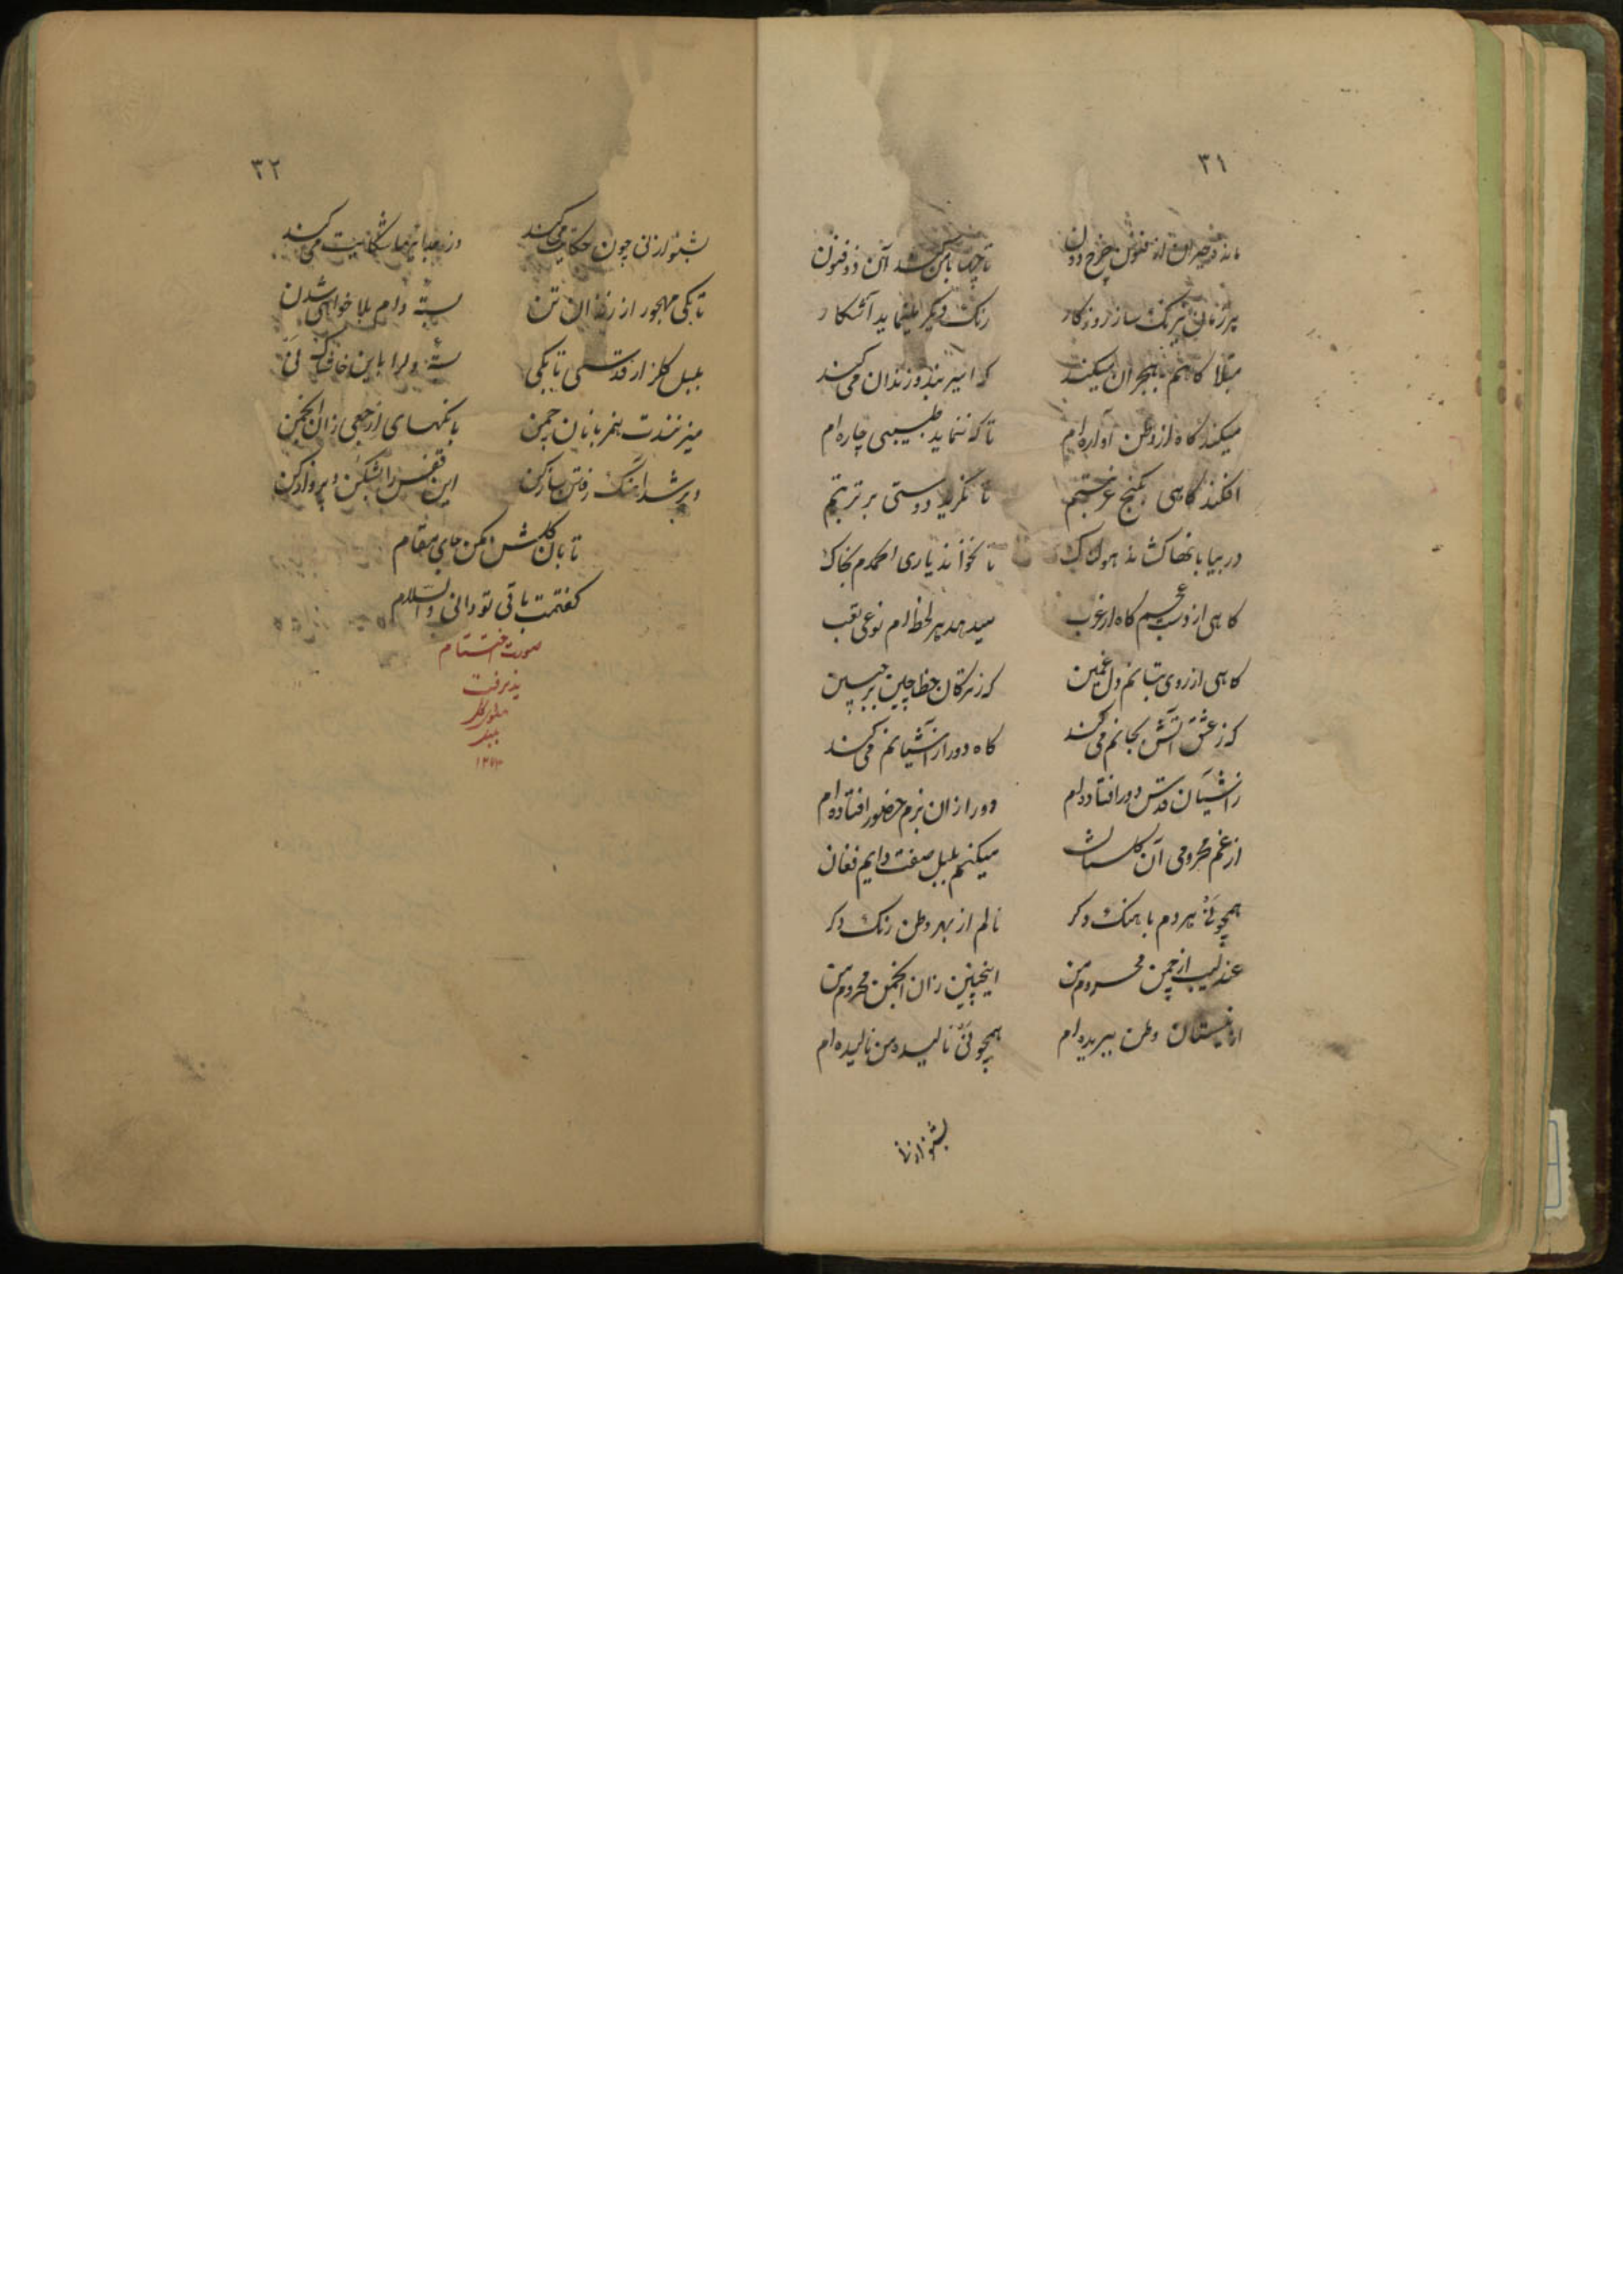 ۳۱
مانده حیران از فنون چرخ دون تا چها با من کند آن ذوفنون
هر زمان نیرنک ساز روزکار رنک دیکر مینماید آشکار
مبتلا کاهم بهجران میکند که اسیر بند و زندان می کند
میکند کاه از وطن آواره ام تا که ننماید طبیبی چاره ام
افکند کاهی بکنج غربتم تا نکرید دوستی بر تربتم
در بیابانها کشاند هولناک تا نخواند یاری الحمدم بخاک
کاهی از دست عجم کاه از عرب میدهد هر لحظه ام نوعی تعب
کاهی از روی بتانم دل غمین که ز ترکان خطا چین بر جبین
که ز عشق آتش بجانم می کند کاه دور از آشیانم می کند
زآشیان قدس دور افتاده ام دور ازان بزم حضور افتاده ام
از غم محرومی آن کلستان میکنم بلبل صفت دایم فغان
همچو نی هر دم باهنک دکر نالم از بهر وطن رنک دکر
عندلیب از چمن محروم من اینچنین زان انجمن محروم من
از نیستان وطن ببریده ام همچو نی نالیده من نالیده ام
بشنو از نی
۳۲
بشنو از نی چون حکایت می کند وز جداییها شکایت می کند
تا بکی مهجور از زندان تن بسته دام بلا خواهی شدن
بلبل کلزار قدسی تا بکی بسته دل را باین خاشاک لی
میزنندت همزبانان چمن بانکهای ارجعی زان انجمن
دیر شد آهنک رفتن ساز کن این قفس را بشکن و پرواز کن
تا بان کلشن بکن جای مقام
کفتمت باقی تو دانی والسلام
صورت اختتام
پذیرفت
کل
بلبل